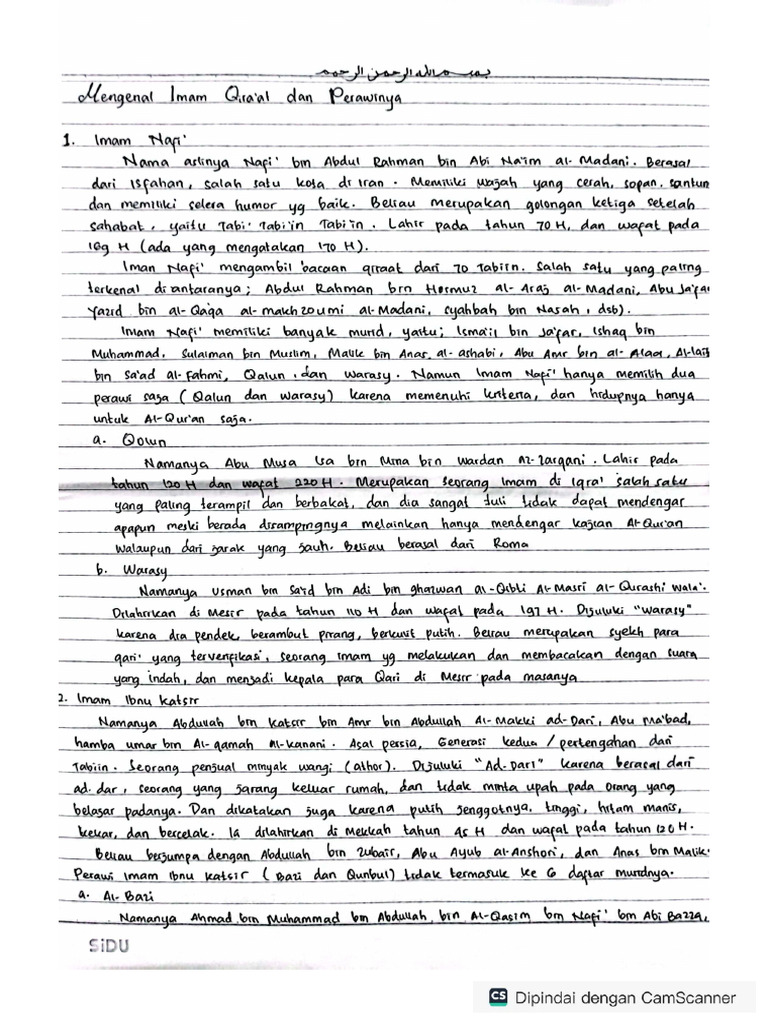 بسم الله الرحمن الرحيم
Mengenal Imam Qira'at dan Perawinya
1. Imam Nafi'
Nama aslinya Nafi' bin Abdul Rahman bin Abi Na'im al-Madani. Berasal
dari Isfahan, salah satu kota di Iran. Memiliki wajah yang cerah, sopan, santun
dan memiliki selera humor yg baik. Beliau merupakan golongan ketiga setelah
sahabat, yaitu Tabi' Tabi'in Tabi'in. Lahir pada tahun 70 H, dan wafat pada
169 H (ada yang mengatakan 170 H).
Iman Nafi' mengambil bacaan qiraat dari 70 Tabiin. Salah satu yang paling
terkenal diantaranya; Abdul Rahman bin Hormuz al-Araj al-Madani, Abu Ja'far
Yazid bin al-Qa'qa al-makhzoumi al-Madani, syahbah bin Nasah, dsb).
Imam Nafi' memiliki banyak murid, yaitu; Ismail bin ja'far, Ishaq bin
Muhammad, Sulaiman bin Muslim, Malik bin Anas, al-ashabi, Abu Amr bin al-Alaa, Al-laits
bin Sa'ad al-fahmi, Qalun, dan Warasy. Namun Imam Nafi' hanya memilih dua
perawi saja (Qalun dan Warasy) karena memenuhi kriteria, dan hidupnya hanya
untuk Al-Qur'an saja.
a. Qolun
Namanya Abu Musa Isa bin Mina bin Wardan Az-zarqani. Lahir pada
tahun 120 H dan wafat 220 H. Merupakan seorang Imam di Iqra' salah satu
yang paling terampil dan berbakat, dan dia sangat tuli tidak dapat mendengar
apapun meski berada disampingnya melainkan hanya mendengar kajian Al-Qur'an
walaupun dari jarak yang jauh. Beliau berasal dari Roma
b. Warasy
Namanya Usman bin Sa'id bin Adi bin ghazwan al-Qibti Al-Masri al-Qurashi Wala'.
Dilahirkan di Mesir pada tahun 110 H dan wafat pada 197 H. Dijuluki "Warasy"
karena dia pendek, berambut pirang, berkulit putih. Beliau merupakan syekh para
qari' yang terverifikasi, seorang imam yg melakukan dan membacakan dengan suara
yang indah, dan menjadi kepala para Qari di Mesir pada masanya
2. Imam Ibnu Katsir
Namanya Abdullah bin Katsir bin Amr bin Abdullah Al-Makki ad-Dari, Abu Ma'bad,
hamba umar bin Al-qamah Al-kanani. Asal persia, Generasi kedua / pertengahan dari
Tabiin. Seorang penjual minyak wangi (athor). Dijuluki "Ad-Dari" karena berasal dari
ad-dar, seorang yang jarang keluar rumah, dan tidak minta upah pada orang yang
belajar padanya. Dan dikatakan juga karena putih jenggotnya, tinggi, hitam manis,
kekar, dan bercelak. Ia dilahirkan di Mekkah tahun 45 H dan wafat pada tahun 120 H.
Beliau berjumpa dengan Abdullah bin Zubair, Abu Ayub al-Anshori, dan Anas bin Malik.
Perawi Imam Ibnu Katsir (Bazi dan Qunbul) tidak termasuk ke 6 daftar muridnya.
a. Al-Bazi
Namanya Ahmad bin Muhammad bin Abdullah, bin Al-Qasim bin Nafi' bin Abi Bazza,
SiDU
CS Dipindai dengan CamScanner